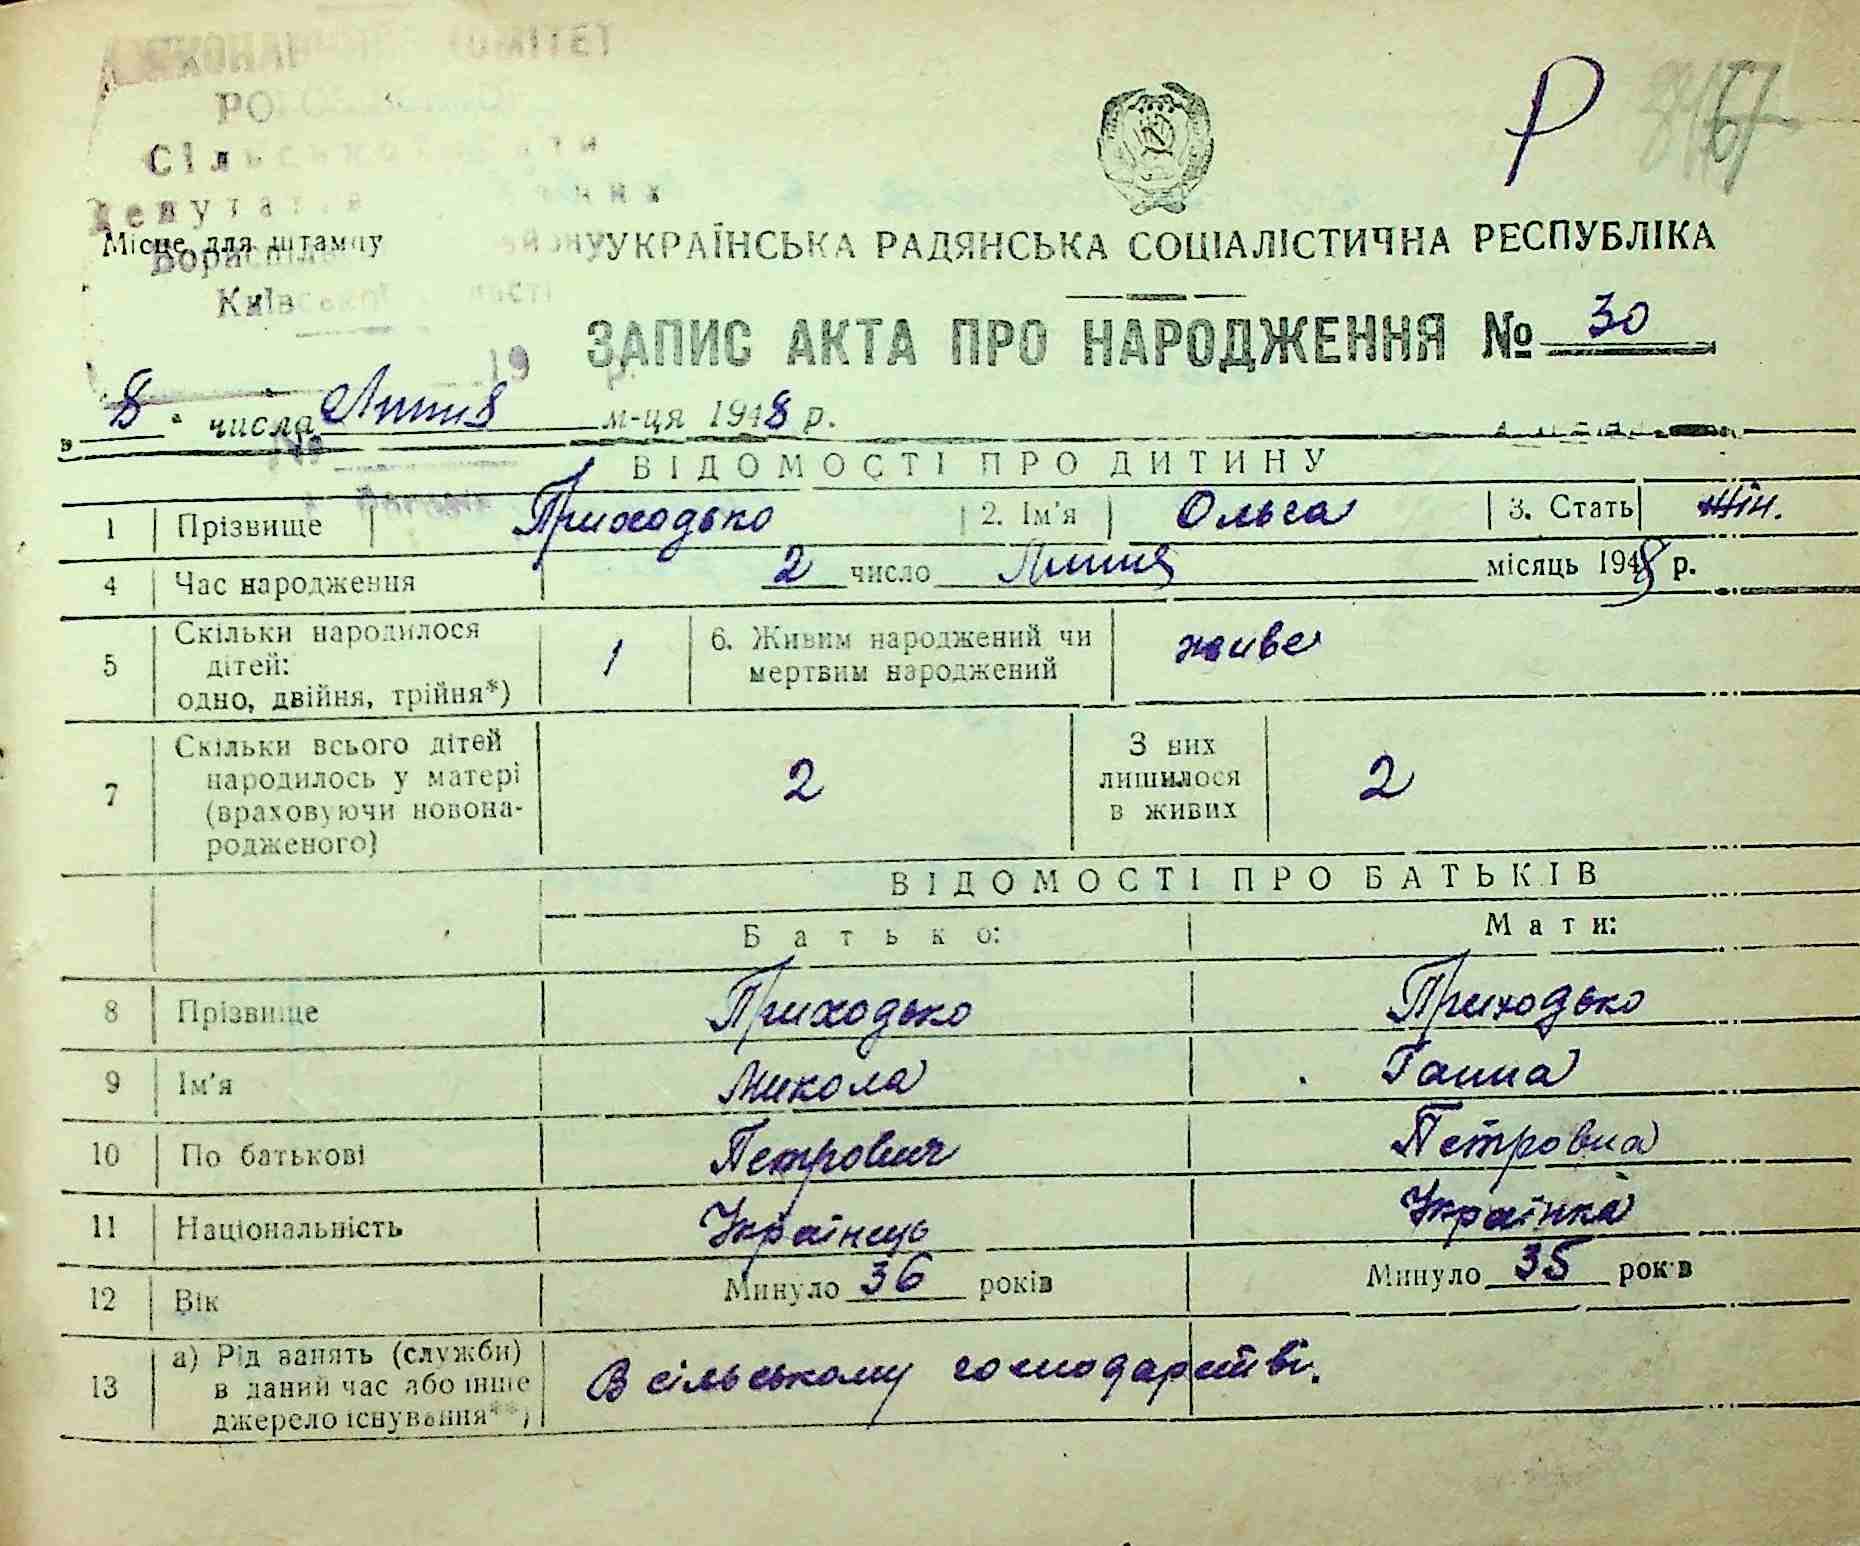 ВИКОНАВЧИЙ КОМІТЕТ
Сільської Ради
Депутатів
Місце для штампу
Київської області
Р
67
УКРАЇНСЬКА РАДЯНСЬКА СОЦІАЛІСТИЧНА РЕСПУБЛІКА
ЗАПИС АКТА ПРО НАРОДЖЕННЯ № 30
19 р.
„ 8 " числа Липня м-ця 1948 р.
№
ВІДОМОСТІ ПРО ДИТИНУ
1 Прізвище Приходько 2. Ім'я Ольга 3. Стать жін.
4 Час народження 2 число Липня місяць 1948 р.
5 Скільки народилося дітей: одно, двійня, трійня*) 1 6. Живим народжений чи мертвим народжений живе
7 Скільки всього дітей народилось у матері (враховуючи новона-родженого) 2 З них лишилося в живих 2
ВІДОМОСТІ ПРО БАТЬКІВ
Батько: Мати:
8 Прізвище Приходько Приходько
9 Ім'я Микола Ганна
10 По батькові Петрович Петровна
11 Національність Українець Українка
12 Вік Минуло 36 років Минуло 35 років
13 а) Рід занять (служби) в даний час або інше джерело існування**) В сільському господарстві.